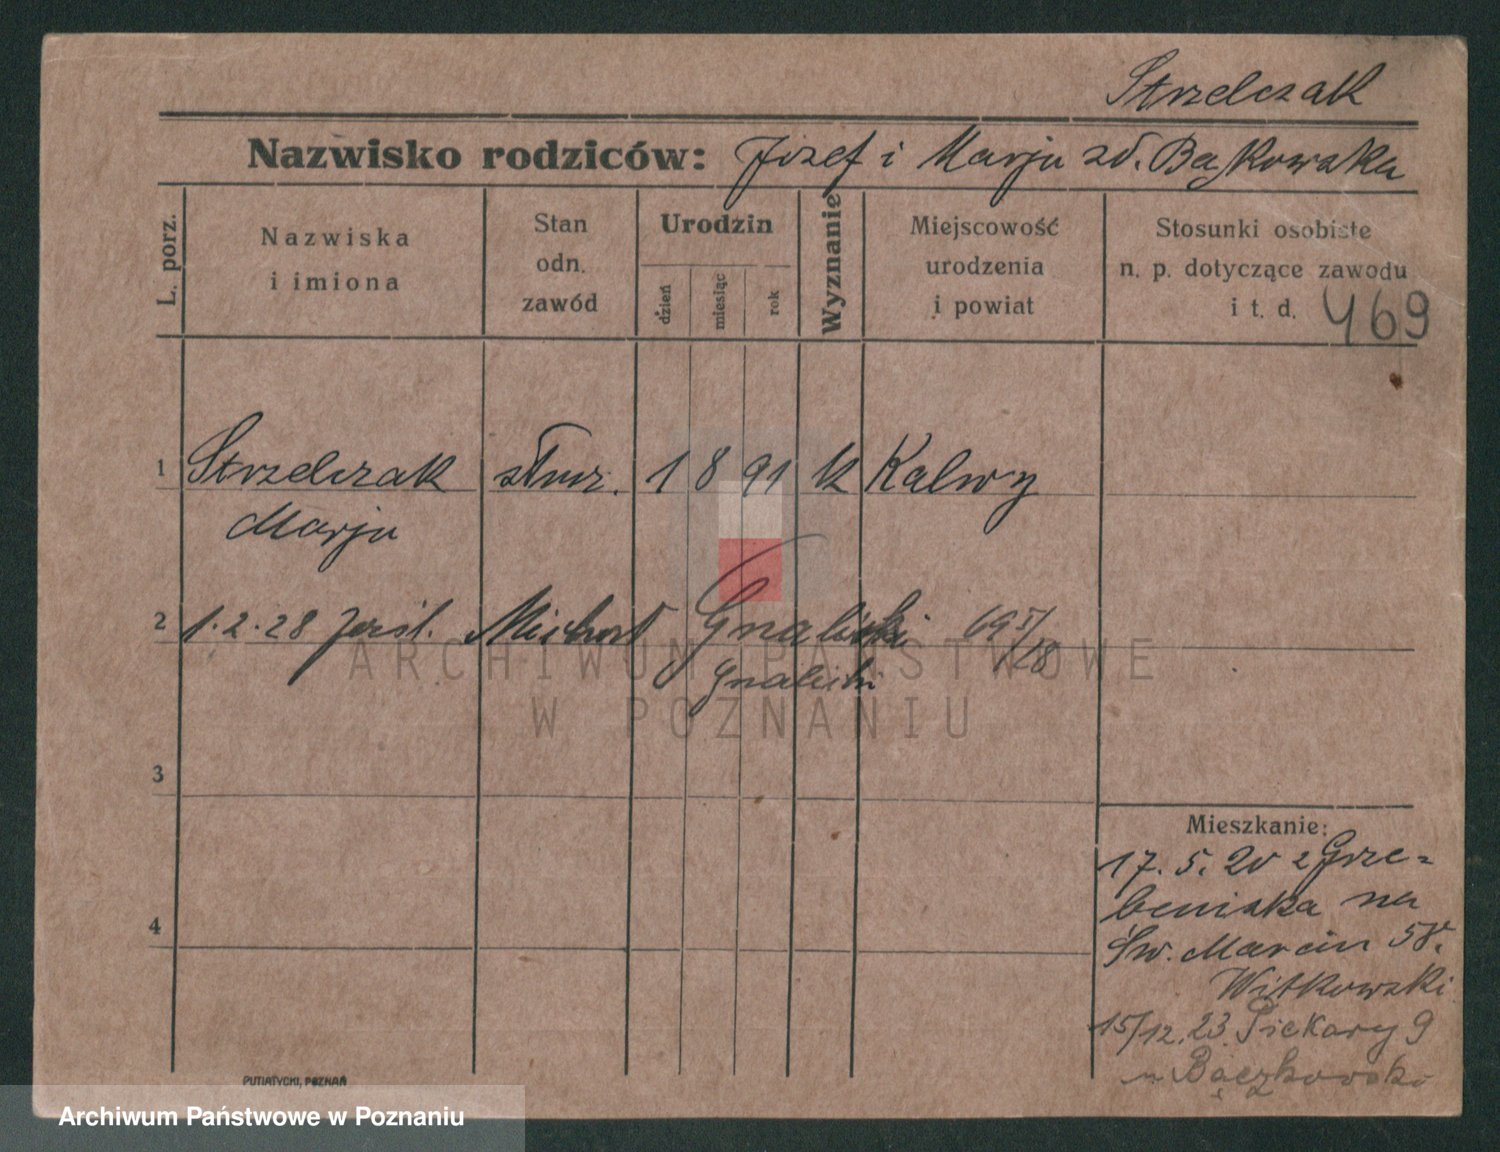 Strzelczak
Nazwisko rodziców: Józef i Marja zd. Bąkowska
L. porz.
Nazwiska
i imiona
Stan
odn.
zawód
Urodzin
dzień
miesiąc
rok
Wyznanie
Miejscowość
urodzenia
i powiat
Stosunki osobiste
n. p. dotyczące zawodu
i t. d. 469
1 Strzelczak służ. 1 8 91 k Kalwy
Marja
2 1.2.28 Gnaliński
Gnaliński
3
4
Mieszkanie:
17.5.20 z Grze-
beniska na
Św. Marcin 58.
Witkowski
15/12.23 Piekary 9
u Bączkowski
PUTIATYCKI, POZNAŃ
ARCHIWUM PAŃSTWOWE
W POZNANIU
Archiwum Państwowe w Poznaniu